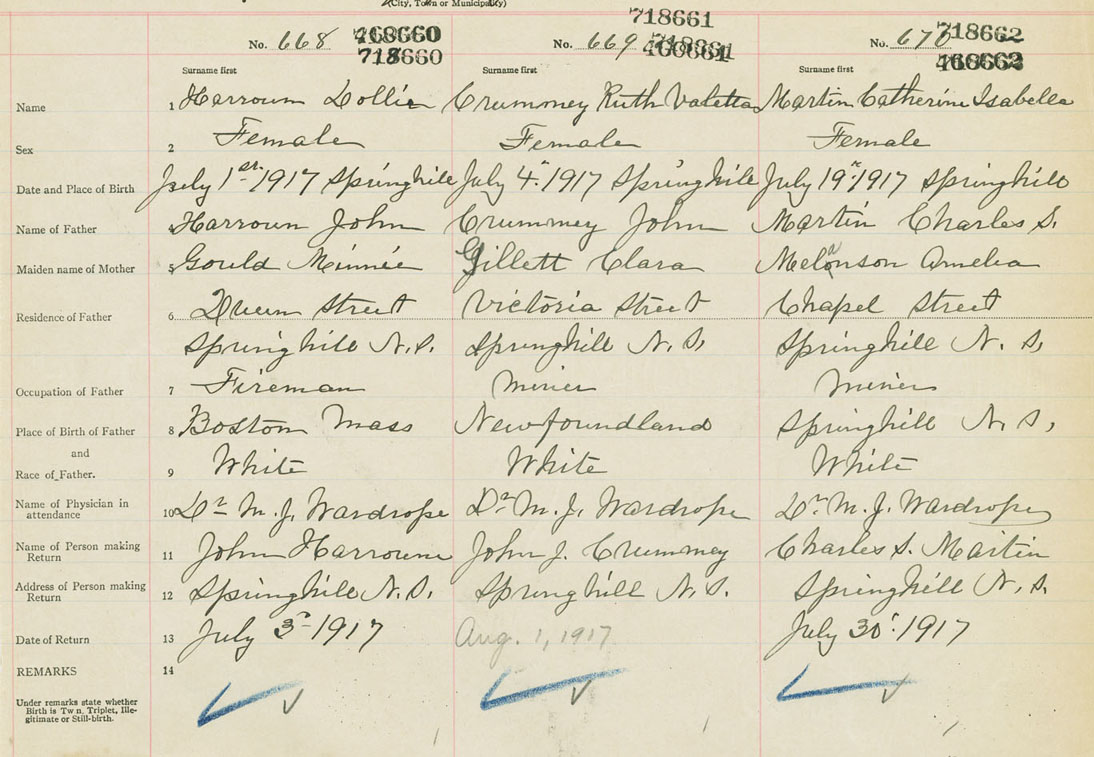 (City, Town or Municipality)
No. 668 718660 No. 669 718661 No. 670 718662
Surname first Surname first Surname first
Name 1 Harroun Dollie Crummey Ruth Valetta Martin Catherine Isabella
Sex 2 Female Female Female
Date and Place of Birth July 1st 1917 Springhill July 4th 1917 Springhill July 19th 1917 Springhill
Name of Father Harroun John Crummey John Martin Charles S.
Maiden name of Mother 5 Gould Minnie Gillett Clara Melanson Amelia
Residence of Father 6 Queen Street Victoria Street Chapel Street
Springhill N.S. Springhill N.S. Springhill N.S.
Occupation of Father 7 Fireman Miner Miner
Place of Birth of Father 8 Boston Mass Newfoundland Springhill N.S.
and
Race of Father. 9 White White White
Name of Physician in
attendance 10 Dr M. J. Wardrope Dr M. J. Wardrope Dr M. J. Wardrope
Name of Person making
Return 11 John Harroun John J. Crummey Charles S. Martin
Address of Person making
Return 12 Springhill N.S. Springhill N.S. Springhill N.S.
Date of Return 13 July 3 1917 Aug. 1, 1917 July 30 1917
REMARKS 14
Under remarks state whether
Birth is Twin, Triplet, Ille-
gitimate or Still-birth.